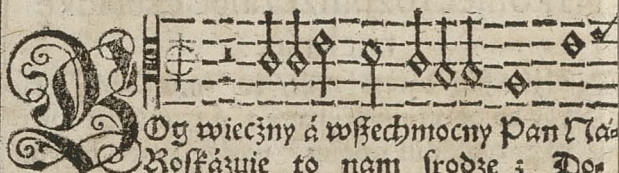 BOg wiecżny á wſzechmocny Pan Ná-
Roſkázuie to nam ſrodze : Do-